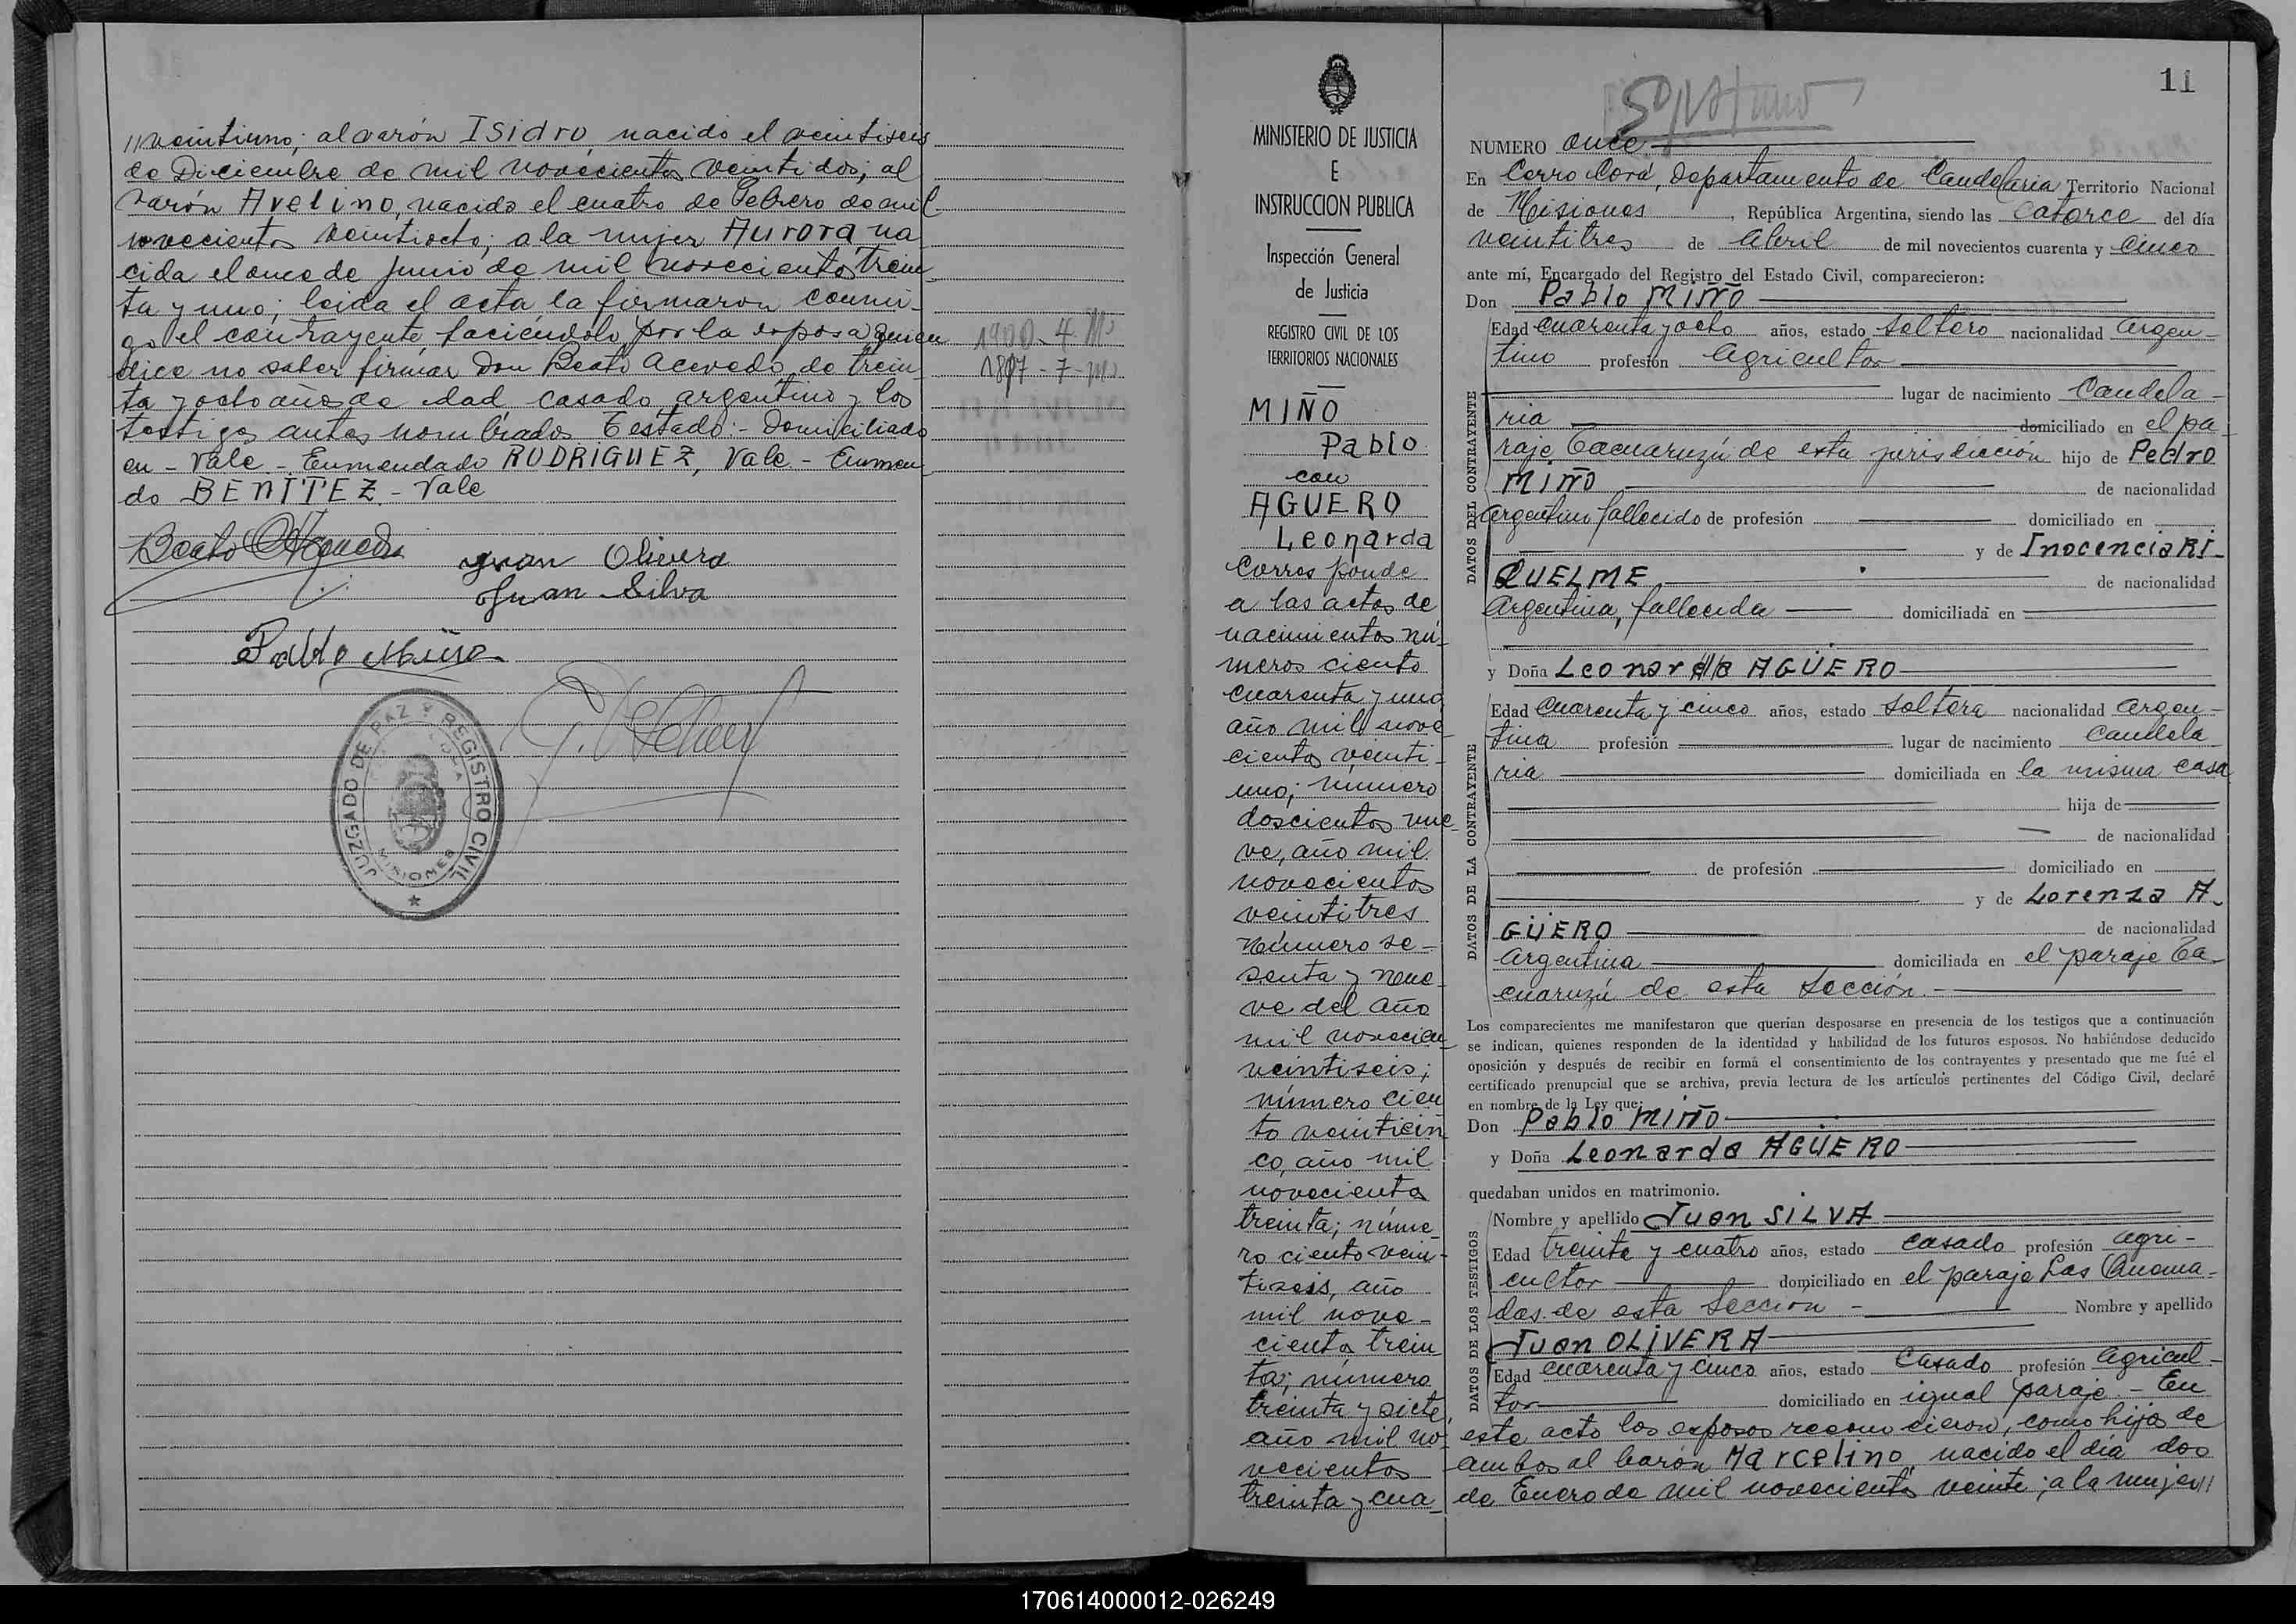 //veintiuno; al varón Isidro, nacido el veintiseis
de Diciembre de mil novecientos veintidos; al
varón Avelino, nacido el cuatro de Febrero de mil
novecientos veintiocho; a la mujer Aurora na
cida el once de Junio de mil novecientos trein
ta y uno; leida el acta la firmaron conmi-
go el contrayente, haciéndolo por la esposa quien
dice no saber firmar Don Beato Acevedo, de trein
ta y ocho años de edad casado, argentino y los
testigos antes nombrados. Testado:- Domiciliado
en - Vale - Enmendado RODRIGUEZ, Vale - Enmen
do BENITEZ - Vale
1900 - 4 - M
1897 - 7 - M
Juan Olivera
Juan Silva
Pablo Miño
JUZGADO DE PAZ Y REGISTRO CIVIL
MISIONES
MINISTERIO DE JUSTICIA
E
INSTRUCCION PUBLICA
Inspección General
de Justicia
REGISTRO CIVIL DE LOS
TERRITORIOS NACIONALES
MIÑO
Pablo
con
AGUERO
Leonarda
Corres ponde
a las actas de
nacimientos nú-
meros ciento
cuarenta y uno
año mil nove
cientos veinti-
uno; número
doscientos nue
ve, año mil
novecientos
veintitres
Número se-
senta y nue-
ve del año
mil novecien
veintiseis;
número cien
to veinticin
co, año mil
novecientos
treinta; núme-
ro ciento vein-
tiseis, año
mil nove-
cientos trein
ta; número
treinta y siete,
año mil no
vecientos
treinta y cua-
11
NUMERO once
En Cerro Corá, Departamento de Candelaria Territorio Nacional
de Misiones, República Argentina, siendo las catorce del día
veintitres de Abril de mil novecientos cuarenta y cinco
ante mí, Encargado del Registro del Estado Civil, comparecieron:
Don Pablo MIÑO
DATOS DEL CONTRAYENTE
Edad cuarenta y ocho años, estado soltero nacionalidad argen-
tino profesión agricultor
lugar de nacimiento Candela-
ria domiciliado en el pa-
raje Tacuaruzú de esta jurisdicción hijo de Pedro
MIÑO de nacionalidad
argentino fallecido de profesión domiciliado en
y de Inocencia RI-
QUELME de nacionalidad
argentina, fallecida domiciliada en
y Doña Leonarda AGÜERO
DATOS DE LA CONTRAYENTE
Edad cuarenta y cinco años, estado soltera nacionalidad argen-
tina profesión lugar de nacimiento Candela
ria domiciliada en la misma casa
hija de
de nacionalidad
de profesión domiciliado en
y de Lorenza A-
GÜERO de nacionalidad
argentina domiciliada en el paraje Ta-
cuaruzú de esta sección.-
Los comparecientes me manifestaron que querían desposarse en presencia de los testigos que a continuación
se indican, quienes responden de la identidad y habilidad de los futuros esposos. No habiéndose deducido
oposición y después de recibir en formá el consentimiento de los contrayentes y presentado que me fué el
certificado prenupcial que se archiva, previa lectura de los artículos pertinentes del Código Civil, declaré
en nombre de la Ley que:
Don Pablo MIÑO
y Doña Leonarda AGÜERO
quedaban unidos en matrimonio.
DATOS DE LOS TESTIGOS
Nombre y apellido Juan SILVA
Edad treinta y cuatro años, estado casado profesión agri-
cultor domiciliado en el paraje Las Quema-
das de esta sección - Nombre y apellido
Juan OLIVERA
Edad cuarenta y cinco años, estado casado profesión agricul-
tor domiciliado en igual paraje.- En
este acto los esposos reconocieron, como hijos de
ambos al barón Marcelino, nacido el día dos
de Enero de mil novecientos veinte; a la mujer//
170614000012-026249